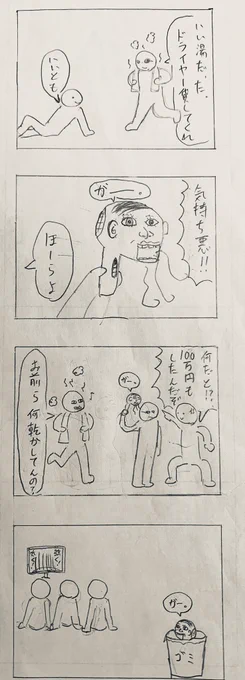 いい湯だった。
ドライヤー貸してくれ
いいとも
気持ち悪!!
ガー。
ほーらよ
何だと!?
100万円も
したんだぞ
ガー。
お前ら何乾かしてんの?
ガー。
ゴミ